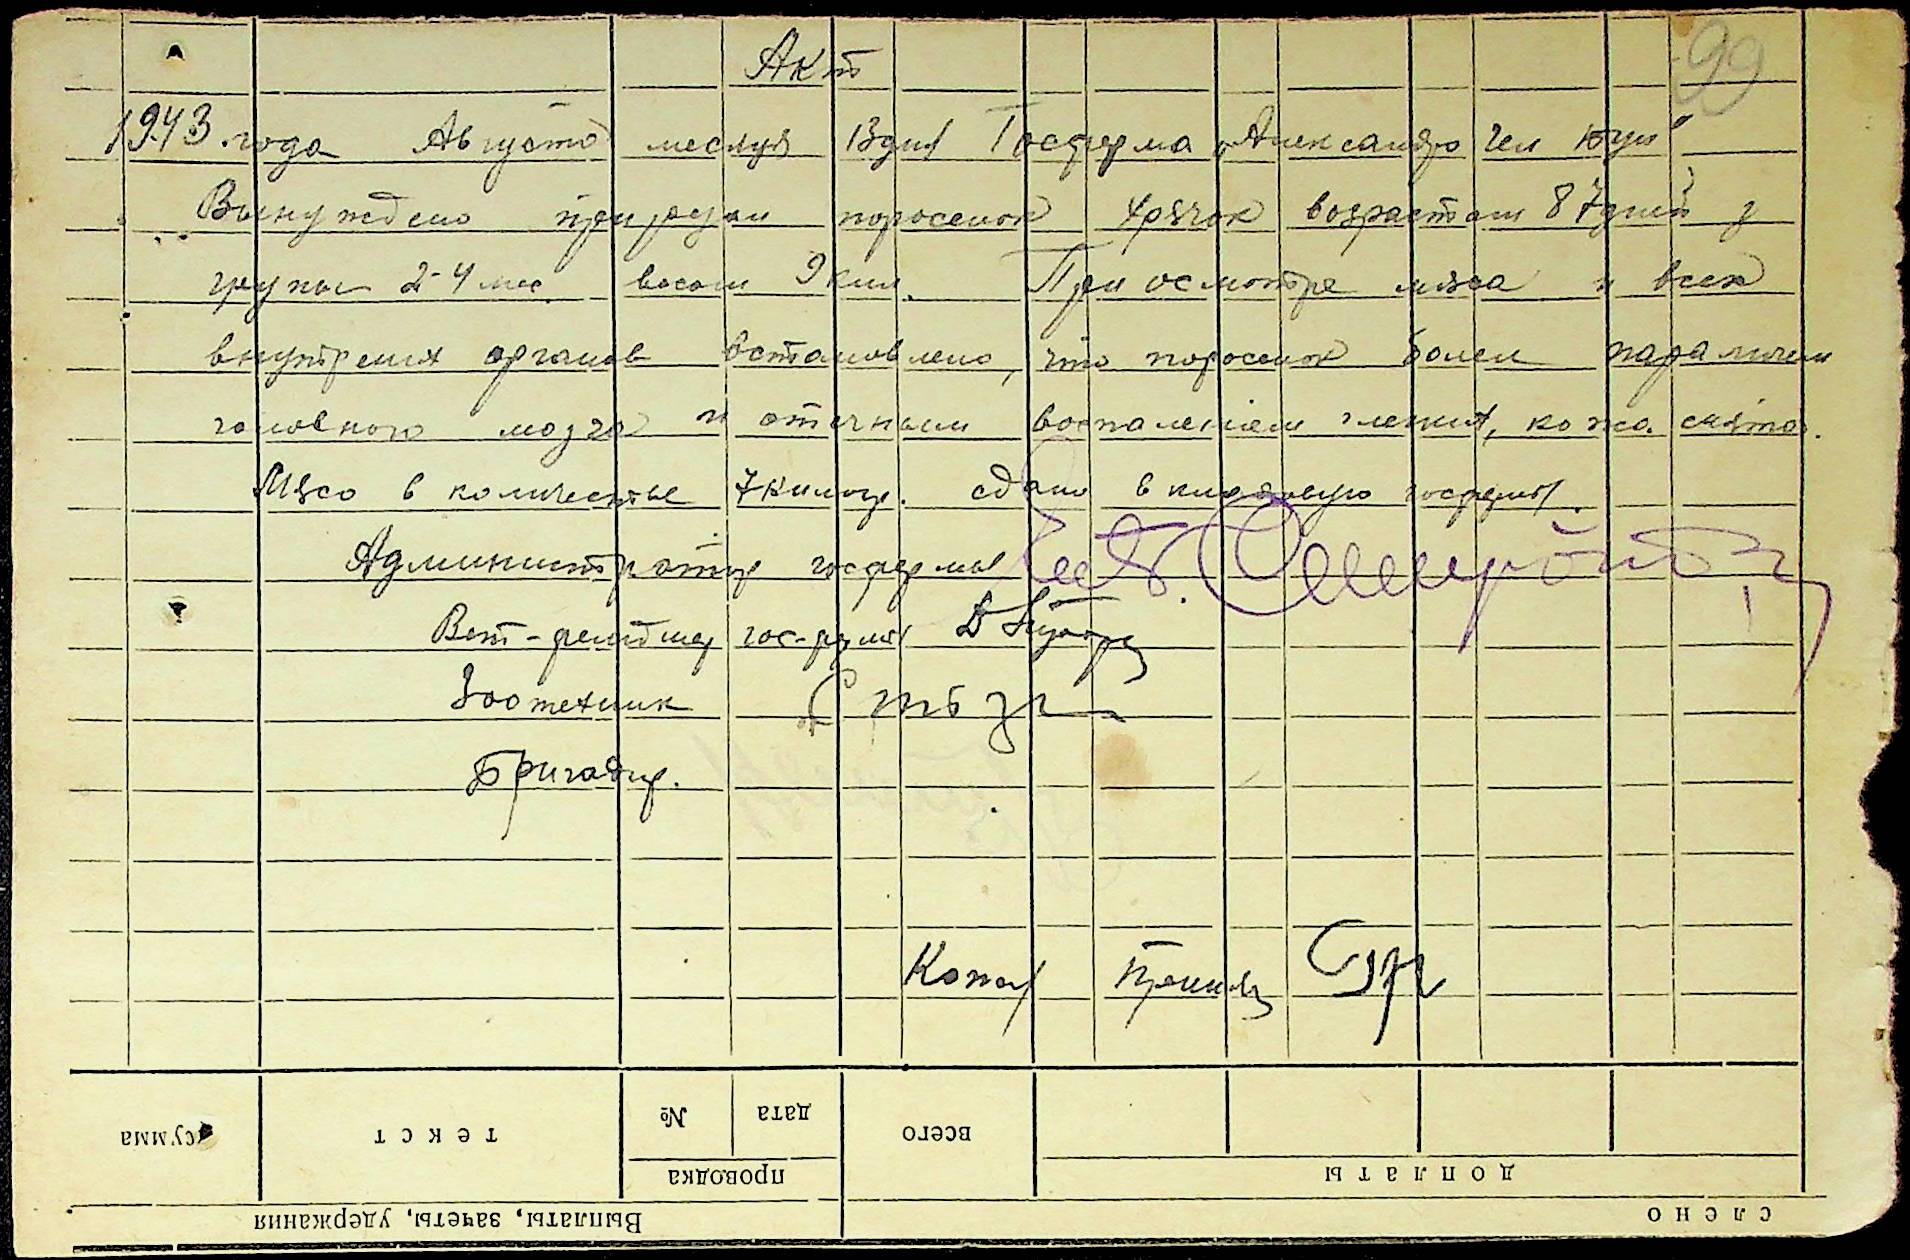 99
Акт
1943 года Августа месяця 13 дня Госферма „Александро
Вынуждено прирезан поросенок хрячок возрастам 87 дней з
групы 2-4 мес. весом 9 кил. При осмотре мяса и всех
внутрених органов встановлено, что поросенок болел параличем
головного мозга и отечным воспаленіем легких, кожа снята.
Мясо в количестве 7 килогр. сдано в кладовую госфермы.
Администратор госфермы
Вет-фельдшер гос-фермы
Зоотехник
Бригадир.
сумма текст № дата всего
проводка доплаты
Выплаты, зачеты, удержания слено